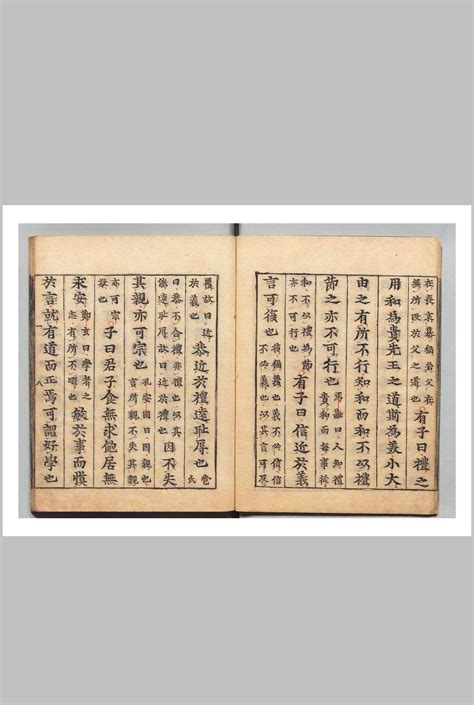 在喪哀慕猶若父存無所改於父之道也有子曰禮之
用和為貴先王之道斯為美小大
由之有所不行知和而和不以禮
節之亦不可行也馬融曰人知禮貴和而每事從
和不以禮為節亦不可行也有子曰信近於義
言可復也復猶覆也義不必信信不必義也以其言可反
覆故曰近於義也恭近於禮遠恥辱也苞氏
曰恭不合禮非禮也以其能遠恥辱故曰近禮也因不失
其親亦可宗也孔安國曰因親也言所親不失其親
亦可宗敬也子曰君子食無求飽居無
求安鄭玄曰學者之志有所不暇也敏於事而慎
於言就有道而正焉可謂好學也